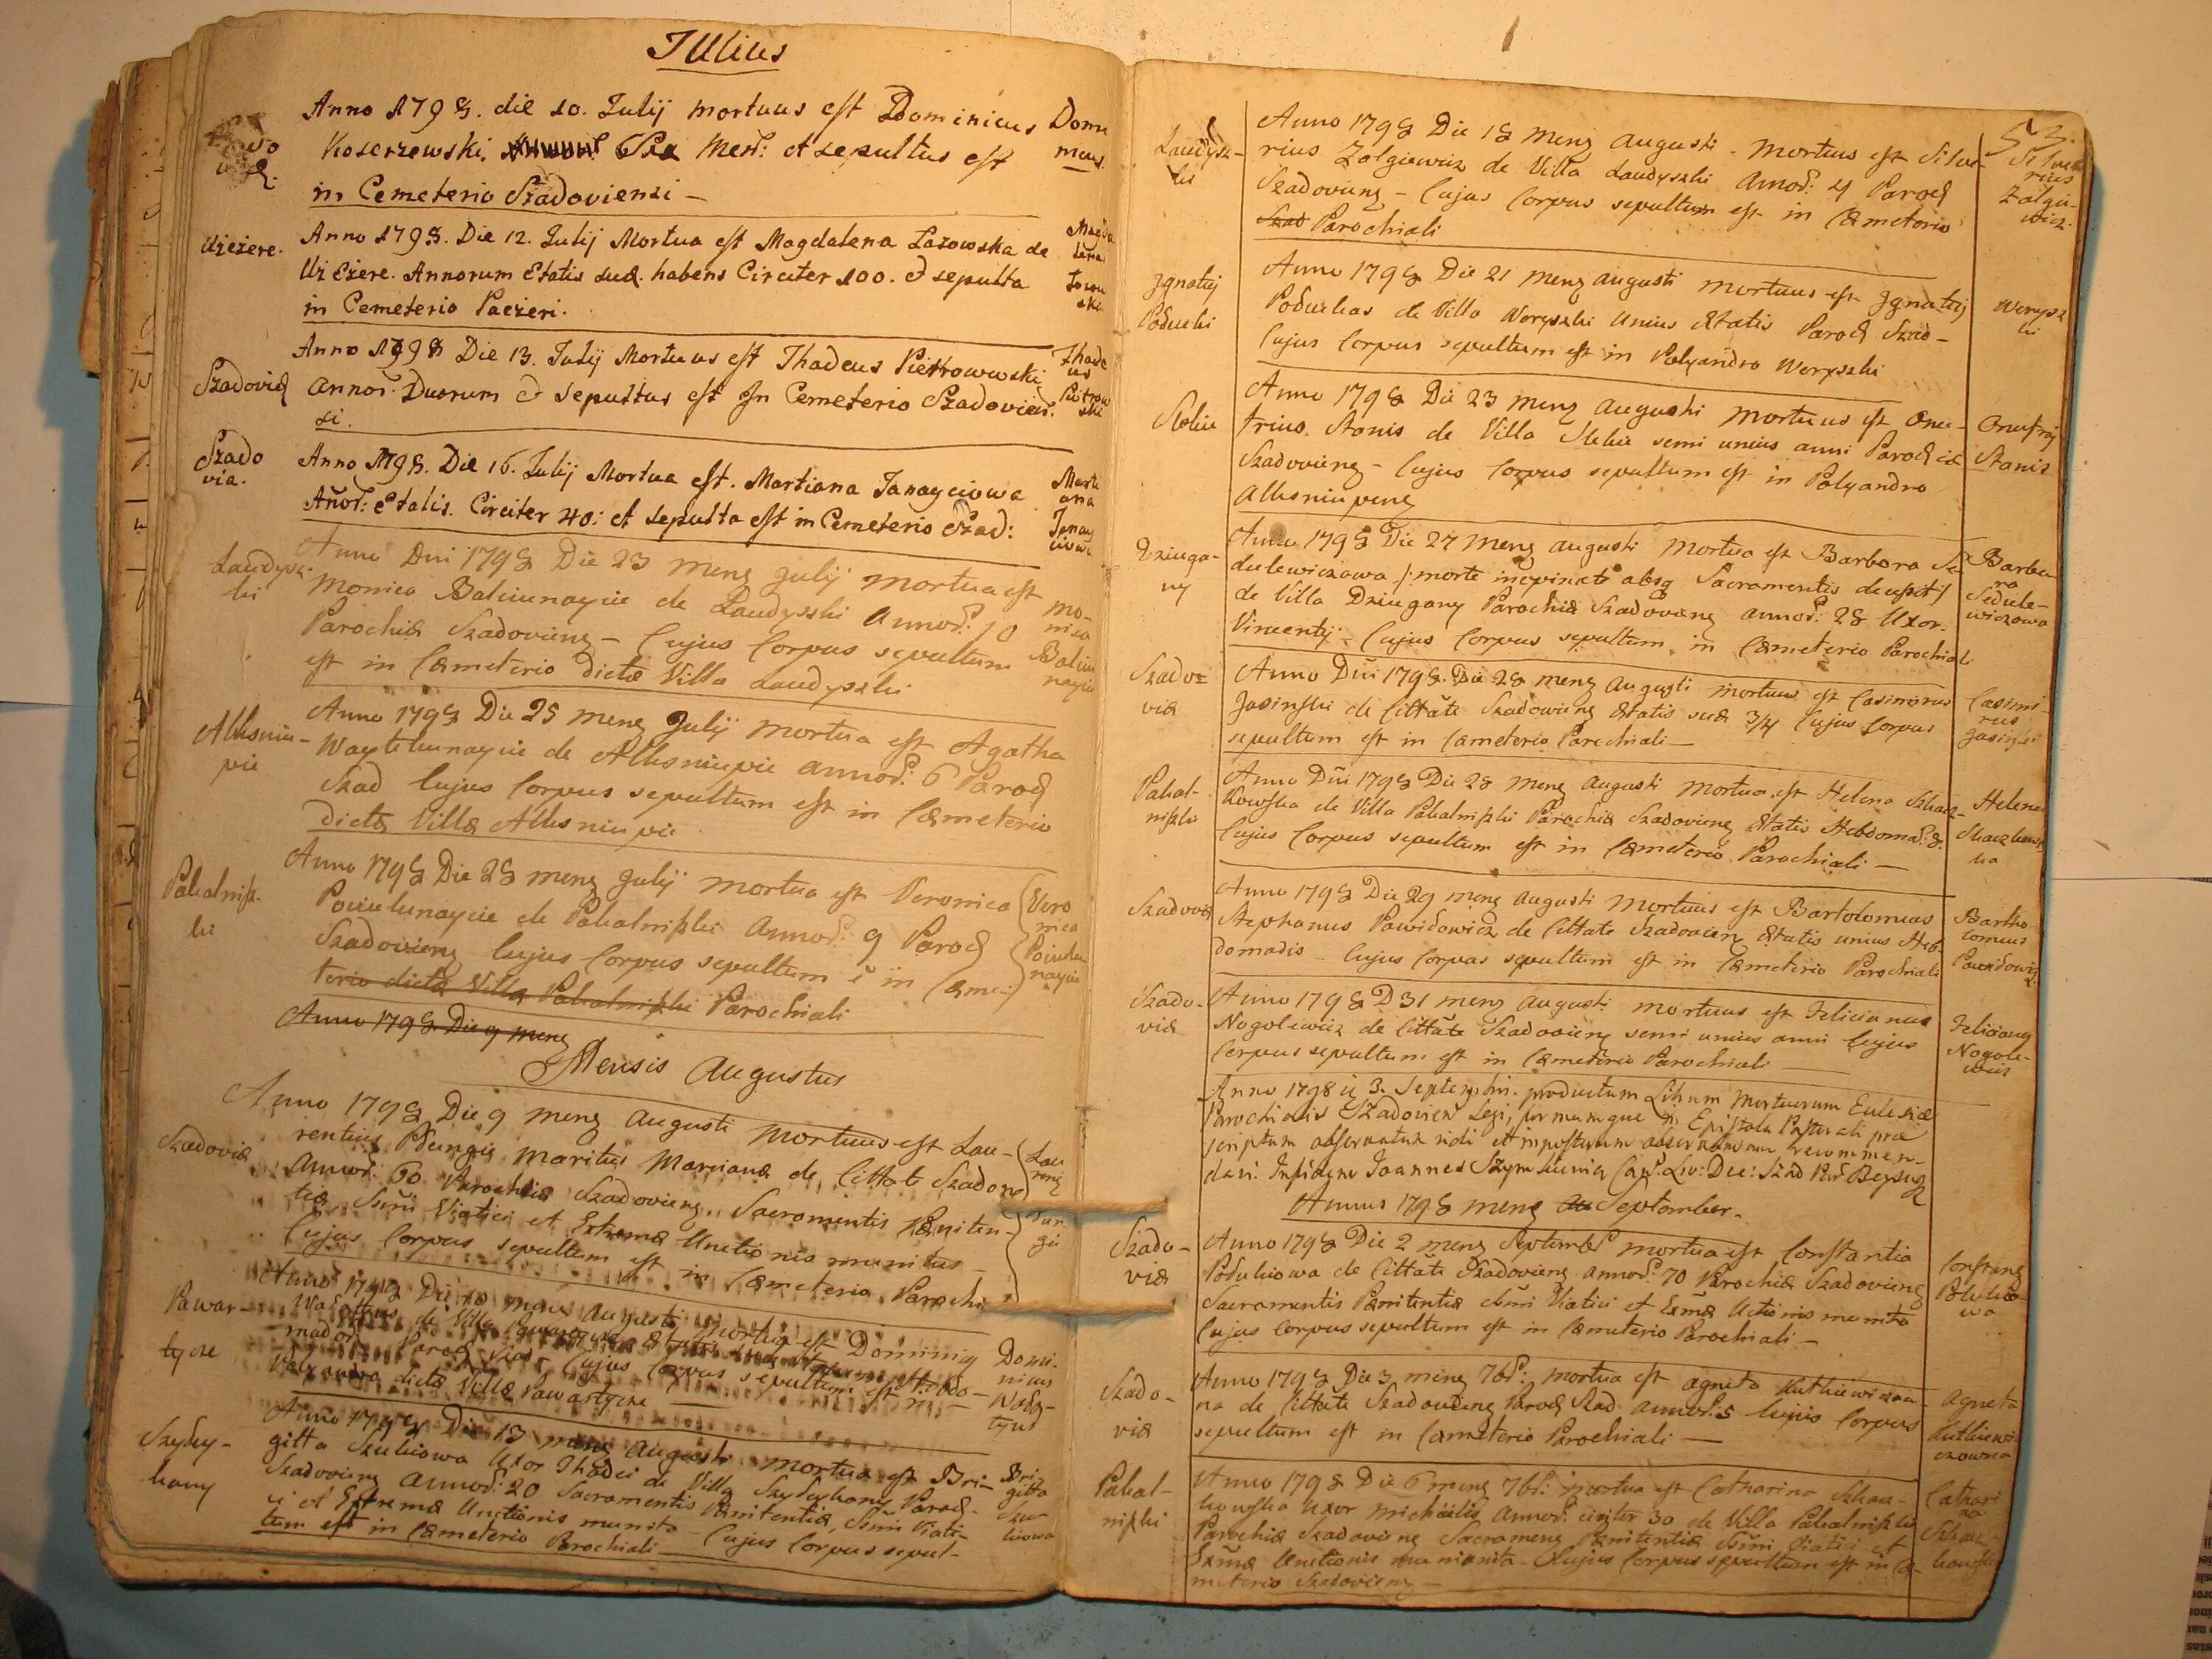 Julius
Anno 1798. die 10. Julij mortuus est Dominicus
Koscrzewski, Sex Men: et sepultus est
in Cemeterio Szadoviensi —
Domi
nicus
Użeżere.
Anno 1798. Die 12. Julij Mortua est Magdalena Lazowska de
Uż Eżere. Annorum Etatis suæ habens Circiter 100. & sepulta
in Cemeterio Pacżeri.
Magda
lena
Szadoviæ
Anno 1798 Die 13. Julij Mortuus est Thadeus Piettrowuwski
annor. Duorum & sepultus est In Cemeterio Szadovien
si.
Thade
us
Piotrow
ski
Szado
via.
Anno 1798. Die 16. Julij Mortua est. Martiana Janayciowa
Añor: Etatis. Circiter 40: et sepulta est in Cemeterio Szad:
Marti
ana
Janay
ciowa
Laudysz
ki
Anno Dni 1798 Die 23 mens Julij mortua est
Monica Balciunaycie de Laudyszki Annor: 10
Parochiæ Szadoviens — Cujus Corpus sepultum
est in Cæmeterio dictæ Villæ Laudyszki
Mo-
nica
Balciu
naycie
Alksniu-
pie
Anno 1798 Die 25 mens Julij mortua est Agatha
Waytekunaycie de Alksniupie annor: 6 Paroch
Szad Cujus Corpus sepultum est in Cæmeterio
dictæ Villæ Alksniupie
Pakalnisz-
ki
Anno 1798 Die 28 mens Julij mortua est Veronica
Pociulunaycie de Pakalniszki Annor: 9 Paroch
Szadoviens Cujus Corpus sepultum ẽ in Cæme
terio dictæ Villæ Pakalniszki Parochiali
Vero
nica
Pociulu
naycie
Anno 1798 Die 9 mens
Mensis Augustus
Szadoviæ
Anno 1798 Die 9 mens Augusti Mortuus est Lau-
rentius maritus Marcianæ de Cittate Szadov
Annor: 60 Parochiæ Szadoviens. Sacramentis Pæniten-
tiæ Ssmi Viatici et Extremæ Unctionis munitus —
Cujus Corpus sepultum est in Cæmeterio Parochi
Lau
rens
Pawar-
tycze
Anno 1798 Die 10 mens Augusti mortuus est Dominicus
de Villa Pawartycze Ætatis suæ Hebdo-
mador: Paroch Szad Cujus Corpus sepultum est in
Polyandro dictæ Villæ Pawartycze
Domi-
nicus
Szydy-
kany
Anno 1798 Die 13 mens Augusti mortua est Bri-
gitta Szukiowa Uxor Thadei de Villa Szydykany Paroch
Szadoviens Annor: 20 Sacramentis Pænitentiæ, Ssmi Viati-
ci et Extremæ Unctionis munita — Cujus Corpus sepul-
tum est in Cæmeterio Parochiali
Bri
gitta
Szu
kiowa
52.
Laudysz-
ki
Anno 1798 Die 18 mens Augusti mortuus est Silve-
rius Zolgiewicz de Villa Laudyszki Annor: 4 Paroch
Szadoviens — Cujus Corpus sepultum est in Cæmeterio
Szad Parochiali
Silve
rius
Zolgie-
wicz.
Jgnatij
Poduchi
Anno 1798 Die 21 mens Augusti mortuus est Jgnatij
Poduchas de Villa Woryszki unius Ætatis Paroch Szad —
Cujus Corpus sepultum est in Polyandro Woryszki
Worysz
ki
Anno 1798 Die 23 mens Augusti mortuus est Onu-
frius Stanis de Villa semi unius anni Parochiæ
Szadoviens — Cujus Corpus sepultum est in Polyandro
Alksniupens
Onufrij
Stanis
Dziuga-
ny
Anno 1798 Die 27 mens Augusti mortua est Barbara Se
dulewiczowa /: morte inopinate absq Sacramentis decessit :/
de Villa Dziugany Parochiæ Szadoviens annor: 28 Uxor.
Vincentij — Cujus Corpus sepultum in Cæmeterio Parochiali
Barba
ra
Sedule-
wiczowa
Szado=
viæ
Anno Dni 1798. Die 28 mens Augusti mortuus est Casimirus
Jasinski de Cittate Szadoviens Ætatis suæ 3/4 Cujus Corpus
sepultum est in Cæmeterio Parochiali —
Casimi-
rus
Jasinski
Pakal-
niszki
Anno Dni 1798 Die 28 mens Augusti Mortua est Helena Szkacz-
kowska de Villa Pakalniszki Parochiæ Szadoviens Ætatis Hebdomad: 8.
Cujus Corpus sepultum est in Cæmeterio Parochiali —
Helena
Skaczkows
ka
Szadoviæ
Anno 1798 Die 29 mens Augusti Mortuus est Bartolomeus
Stephanus Pawidowicz de Cittate Szadovien Ætatis unius Heb-
domadis — Cujus Corpus sepultum est in Cæmeterio Parochiali
Bartho
lomeus
Pawidowicz
Szado-
viæ
Anno 1798 D 31 mens Augusti mortuus est Felicianus
Nogolewicz de Cittate Szadoviens semi unius anni Cujus
Corpus sepultum est in Cæmeterio Parochiali
Felicians
Nogole-
wicz
Anno 1798 3. Septembri. productum Librum Mortuorum Eclesiæ
Parochialis Szadovien Legi, formamque in Epistola Pastorali præ
scriptam observatam vidi et in posterum observandam recommen-
davi. Joannes
Annus 1798 mens Au September.
Szado-
viæ
Anno 1798 Die 2 mens Septemb mortua est Constantia
Poduhiowa de Cittate Szadoviens annor: 70 Parochiæ Szadoviens
Sacramentis Pænitentiæ Ssmi Viatici et Exmæ Uctionis munita
Cujus Corpus sepultum est in Cæmeterio Parochiali —
Szado-
viæ
Anno 1798 Die 3 mens 7br: mortua est Agneta Kutkiewiczow
na de Cittate Szadoviens Paroch Szad annor: 5 Cujus Corpus
sepultum est in Cæmeterio Parochiali —
Agneta
Kutkiewi
czowna
Pakal-
niszki
Anno 1798 Die 6 mens 7br: mortua est Catharina Szkacz-
kowska Uxor Michaelis Annor: circiter 30 de Villa Pakalniszki
Parochiæ Szadoviens Sacramens Pænitentiæ Ssmi Viatici et
Exmæ Unctionis munita — Cujus Corpus sepultum est in Cæ-
meterio Szadoviens —
Cathari
na
Szkacz
kowska